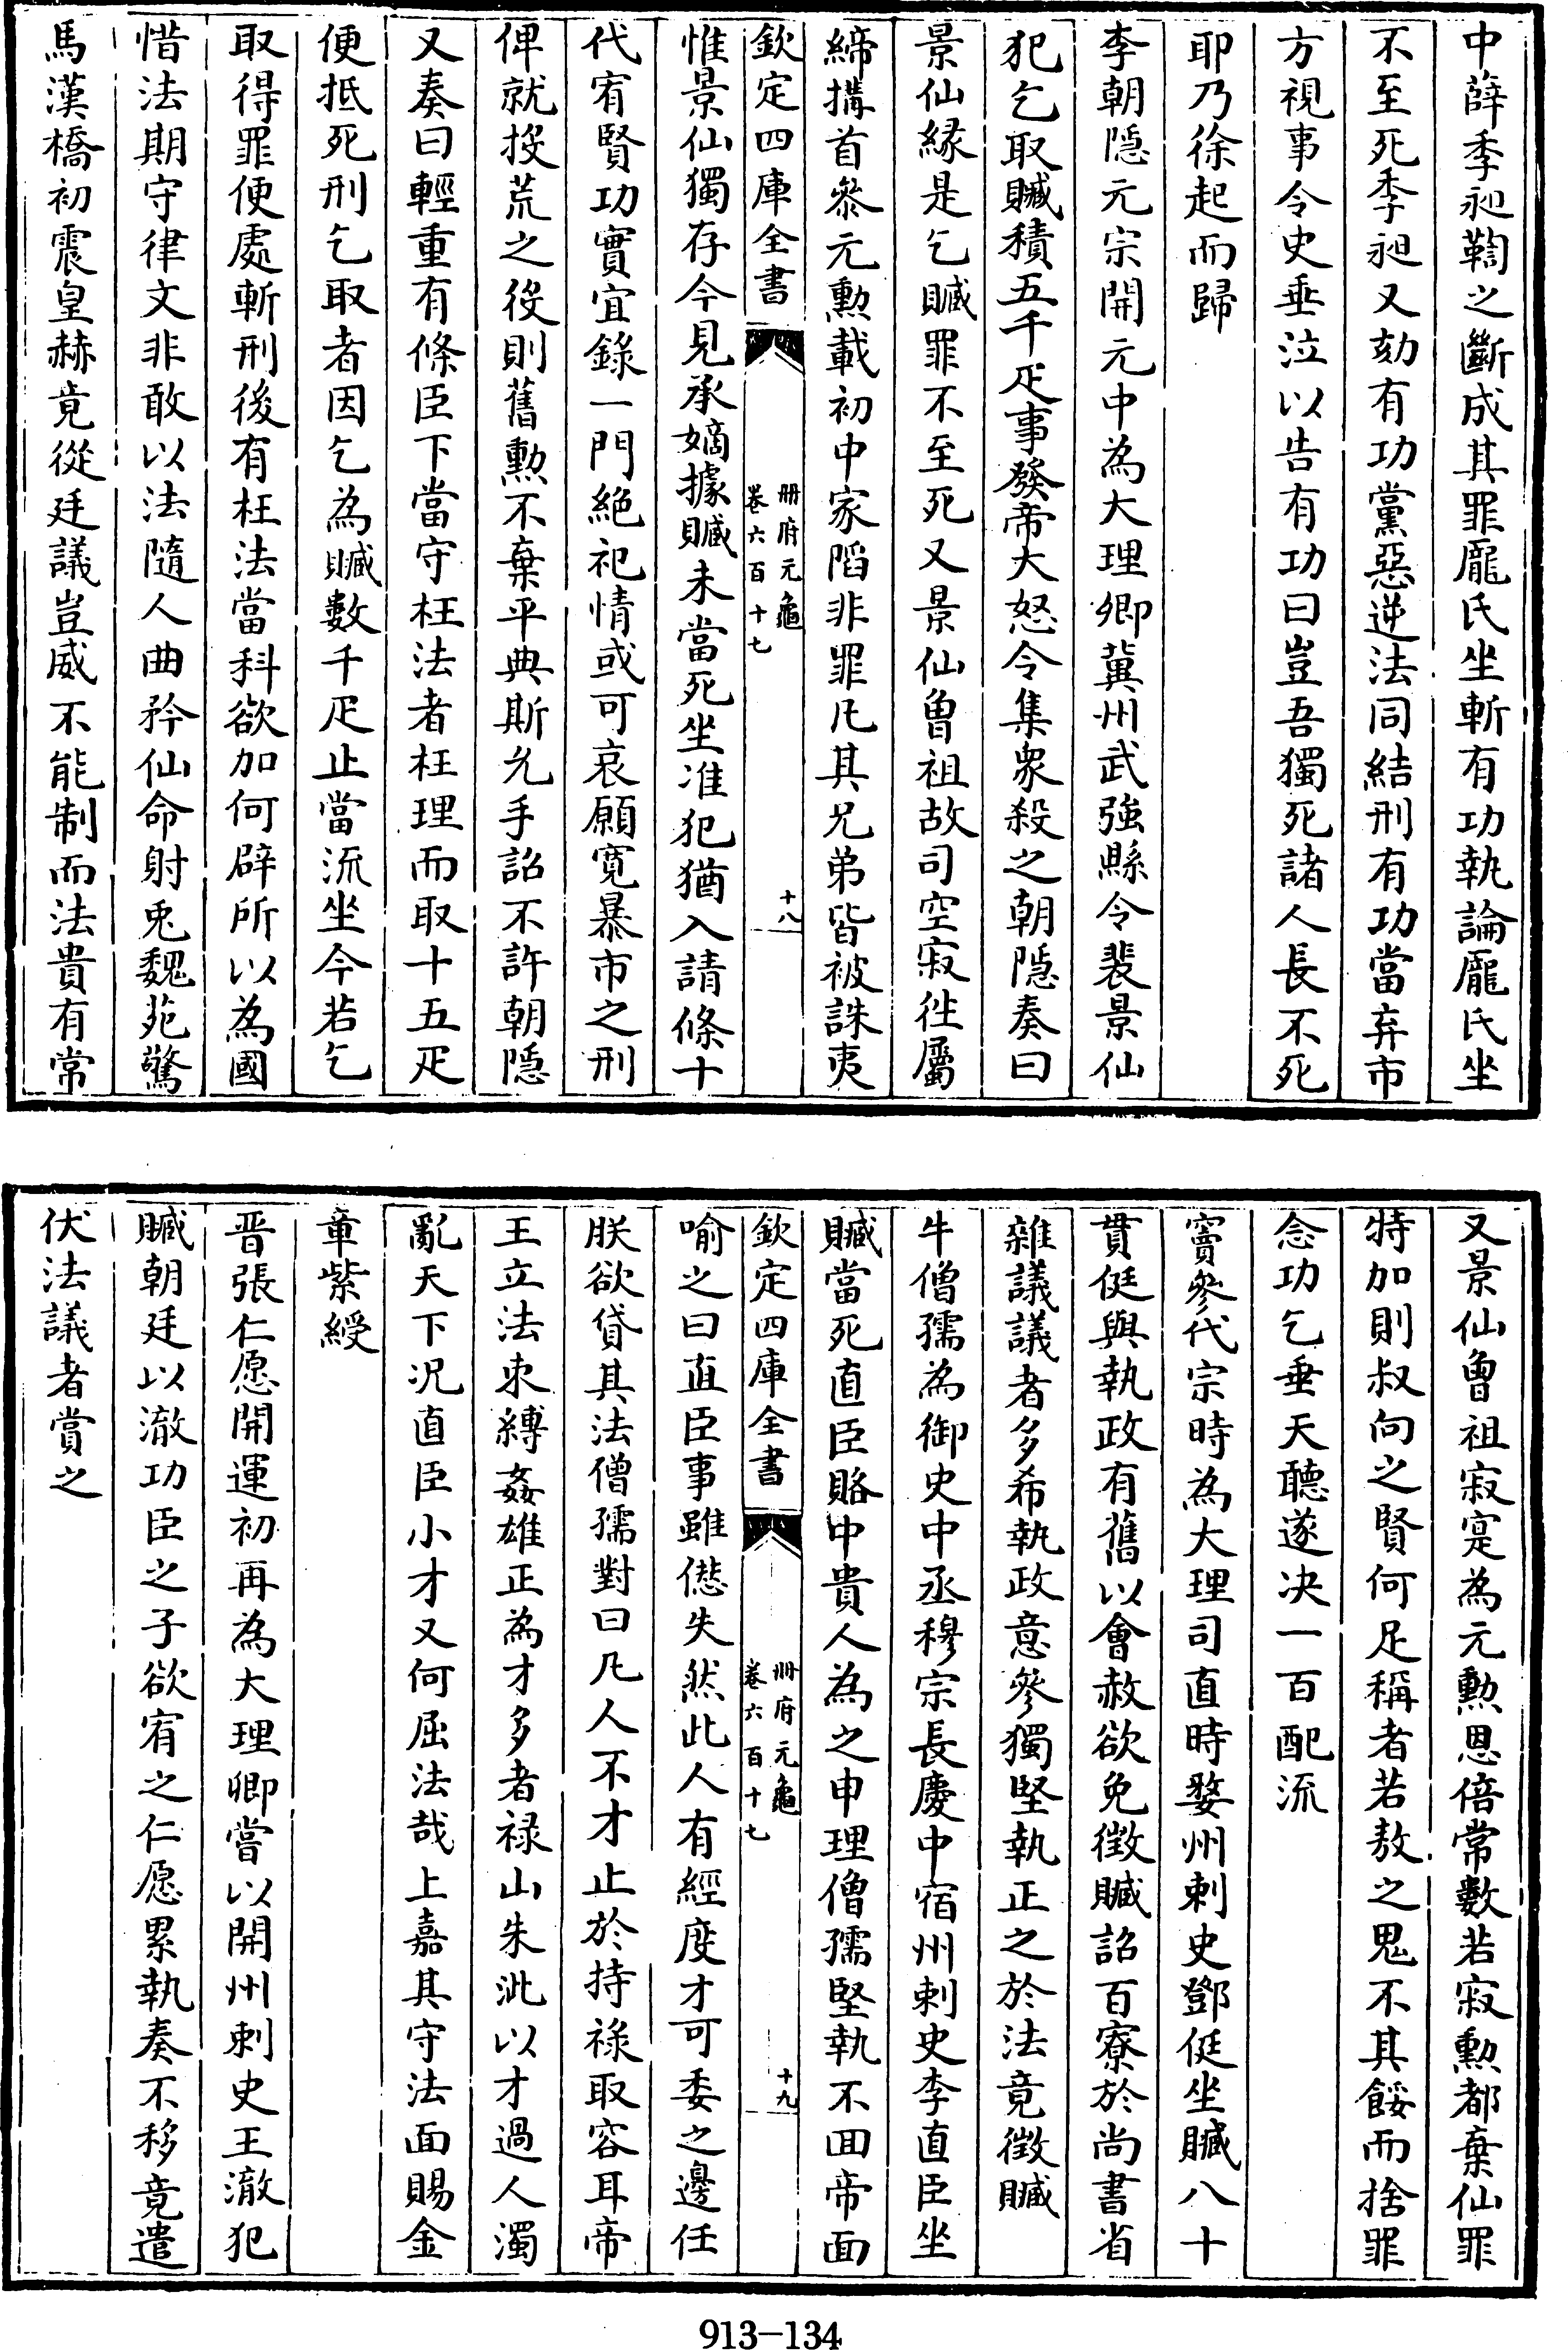 中薛季昶鞫之斷成其罪龐氏坐斬有功執論龐氏坐
不至死季昶又劾有功黨惡逆法同結刑有功當弃市
方視事令史垂泣以告有功曰豈吾獨死諸人長不死
耶乃徐起而歸
李朝隠元宗開元中為大理卿冀州武強縣令裴景仙
犯乞取贓積五千疋事發帝大怒令集衆殺之朝隠奏曰
景仙緣是乞贓罪不至死又景仙曾祖故司空寂徃屬
締搆首參元勲載初中家陷非罪凡其兄弟皆被誅夷
欽定四庫全書 冊府元龜 卷六百十七 十八
惟景仙獨存今見承嫡據贓未當死坐准犯猶入請條十
代宥賢功實宜錄一門絶祀情或可哀願寛暴市之刑
俾就投荒之役則舊勲不棄平典斯允手詔不許朝隠
又奏曰輕重有條臣下當守枉法者枉理而取十五疋
便抵死刑乞取者因乞為贓數千疋止當流坐今若乞
取得罪便處斬刑後有枉法當科欲加何辟所以為國
惜法期守律文非敢以法隨人曲矜仙命射兎魏苑驚
馬漢橋初震皇赫竟從廷議豈威不能制而法貴有常
又景仙曾祖寂寔為元勲恩倍常數若寂勲都棄仙罪
特加則叔向之賢何足稱者若敖之鬼不其餒而捨罪
念功乞垂天聽遂决一百配流
竇參代宗時為大理司直時婺州刺史鄧侹坐贓八十
貫侹與執政有舊以會赦欲免徴贓詔百寮於尚書省
雜議議者多希執政意參獨堅執正之於法竟徴贓
牛僧孺為御史中丞穆宗長慶中宿州刺史李直臣坐
贓當死直臣賂中貴人為之申理僧孺堅執不回帝面
欽定四庫全書 冊府元龜 卷六百十七 十九
喻之曰直臣事雖僣失然此人有經度才可委之邊任
朕欲貸其法僧孺對曰凡人不才止於持禄取容耳帝
王立法束縛姦雄正為才多者禄山朱泚以才過人濁
亂天下况直臣小才又何屈法哉上嘉其守法面賜金
章紫綬
晋張仁愿開運初再為大理卿嘗以開州刺史王澈犯
贓朝廷以澈功臣之子欲宥之仁愿累執奏不移竟遣
伏法議者賞之
913-134